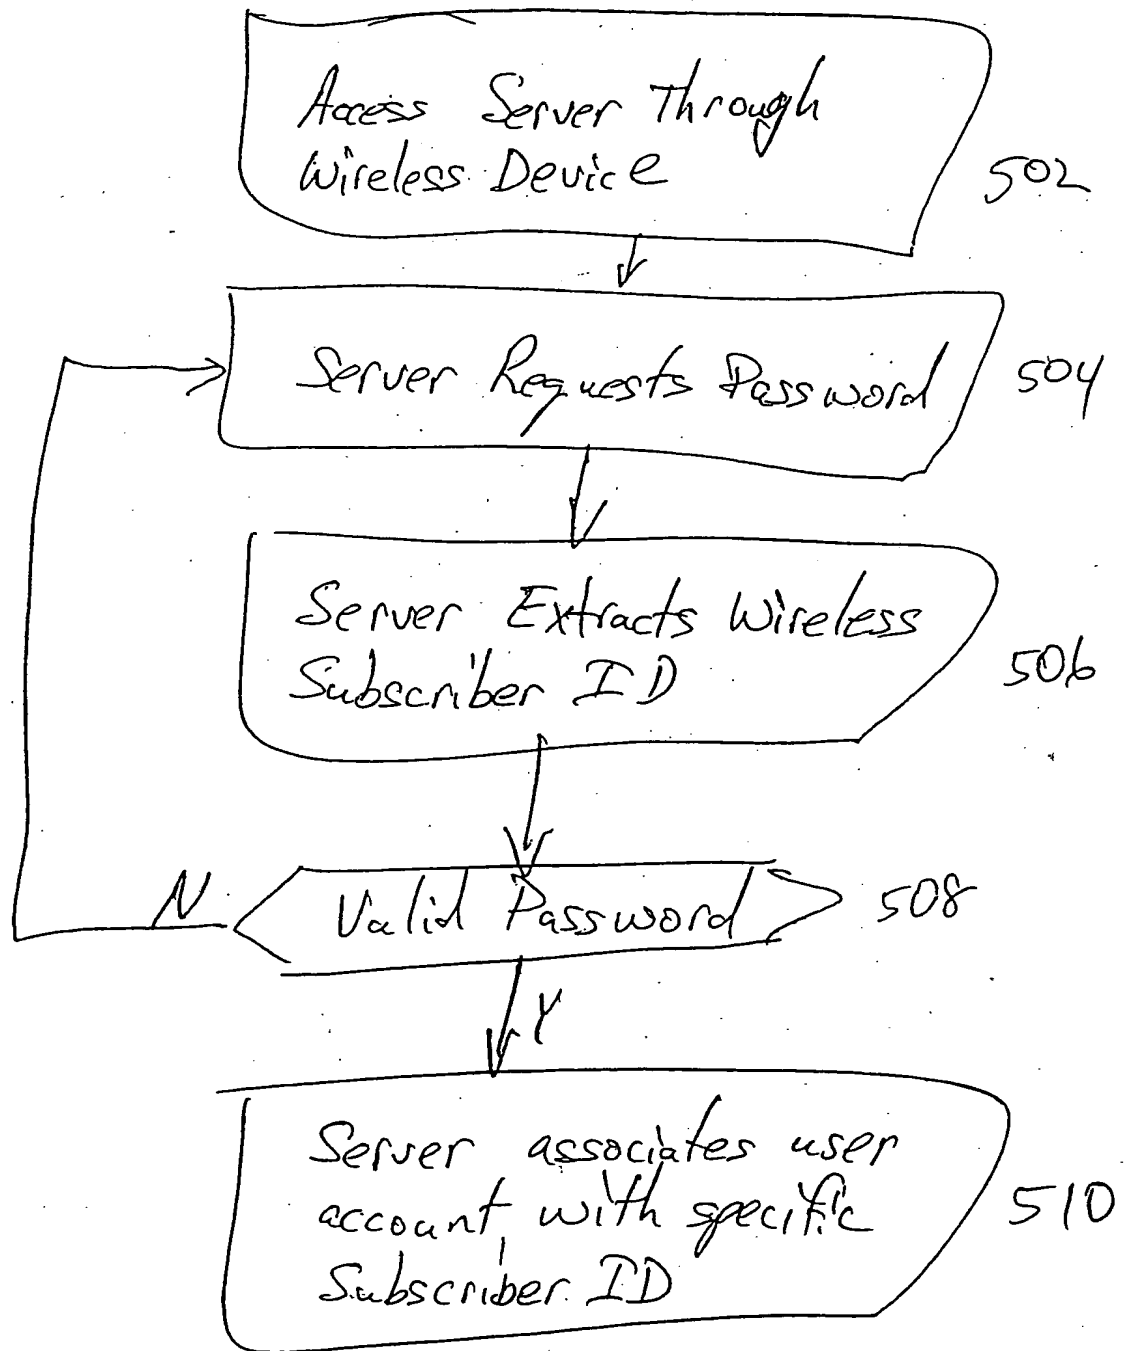 Access Server Through
Wireless Device
502
Server Requests Password
504
Server Extracts Wireless
Subscriber ID
506
N
Valid Password
508
Y
Server associates user
account, with specific
Subscriber ID
510